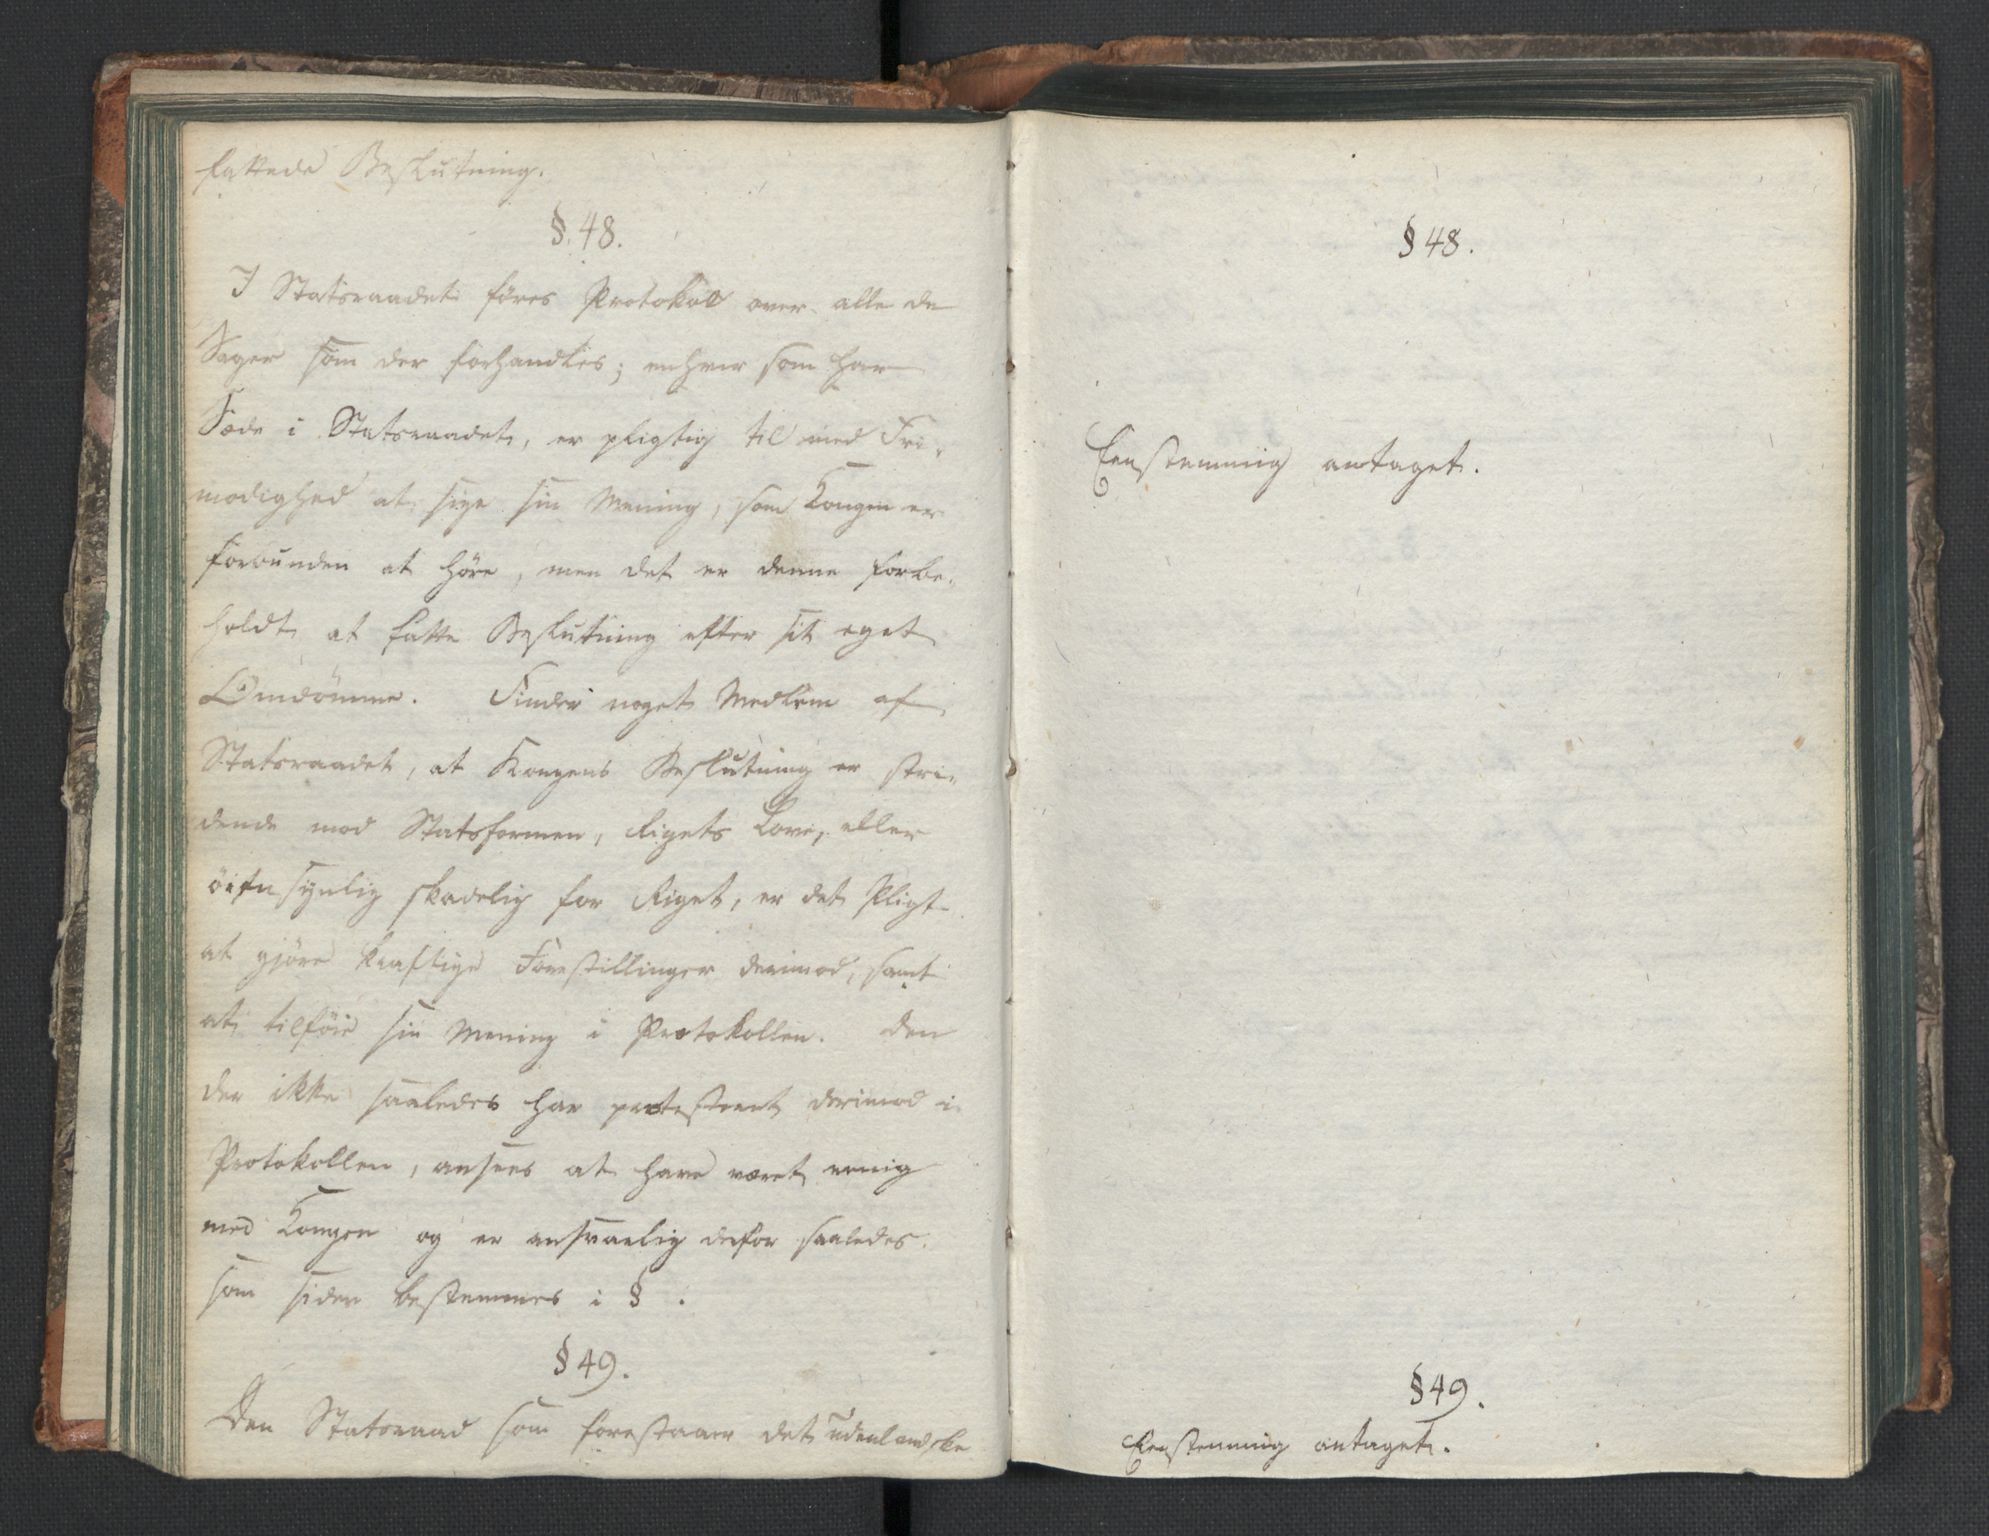 fattede Beslutning.
§. 48.
I Statsraadet føres Protokol over alle de
Sager som der forhandles; enhver som har
Sæde i Statsraadet, er pligtig til med Fri-
modighed at sige sin Mening, som Kongen er
forbunden at høre, men det er denne forbe-
holdt at fatte Beslutning efter sit eget
Omdömme. Finder noget Medlem af
Statsraadet, at Kongens Beslutning er stri-
dende mod Statsformen, Rigets Love, eller
öiensynlig skadelig for Riget, er det Pligt
at gjöre kraftige Forestillinger derimod, samt
at tilföie sin Mening i Protokollen. Den
der ikke saaledes har protesteret derimod i
Protokollen, ansees at have været eenig
med Kongen og er ansvarlig derfor saaledes
som siden bestemmes i § .
§ 49.
Den Statsraad som forestaaer det udenlandske
§ 48.
Eenstemmig antaget.
§ 49.
Eenstemmig antaget.